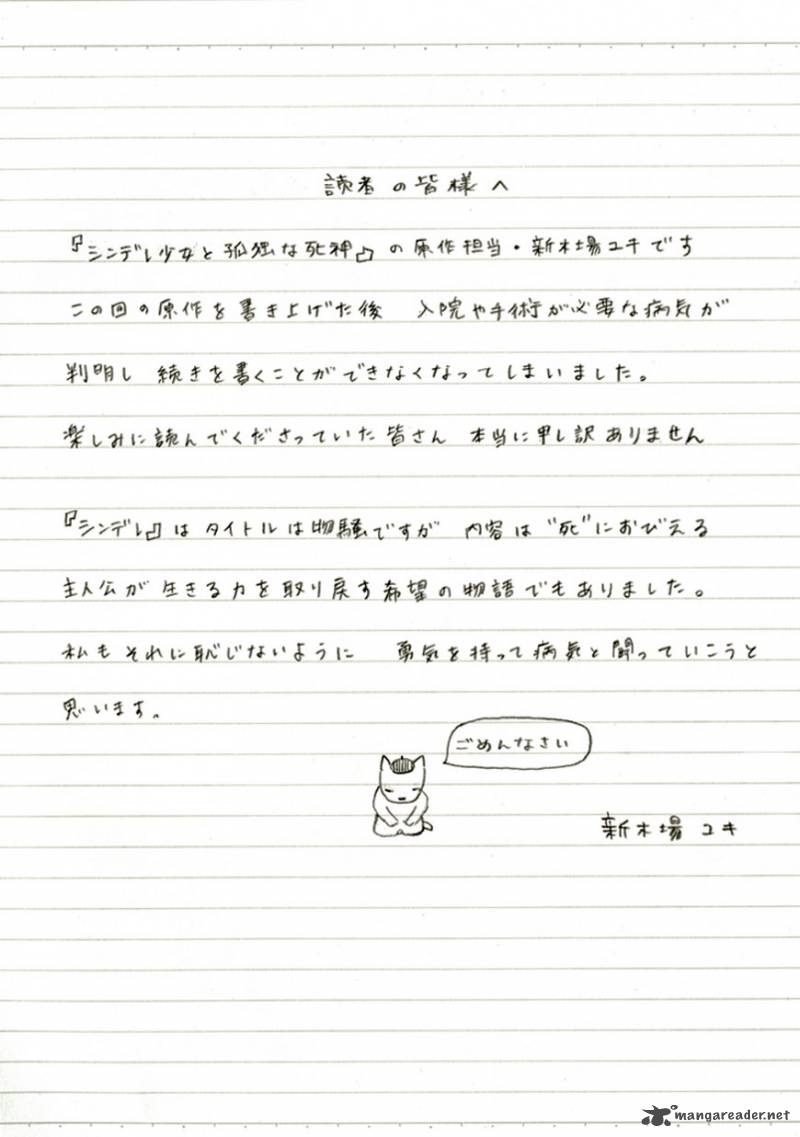 読者の皆様へ
『シンデレ少女と孤独な死神』の原作担当・新木場ユキです
この回の原作を書き上げた後 入院や手術が必要な病気が
判明し 続きを書くことができなくなってしまいました。
楽しみに読んでくださっていた皆さん 本当に申し訳ありません
『シンデレ』はタイトルは物騒ですが 内容は"死"におびえる
主人公が生きる力を取り戻す希望の物語でもありました。
私もそれに恥じないように 勇気を持って病気と闘っていこうと
思います。
ごめんなさい
新木場 ユキ
mangareader.net